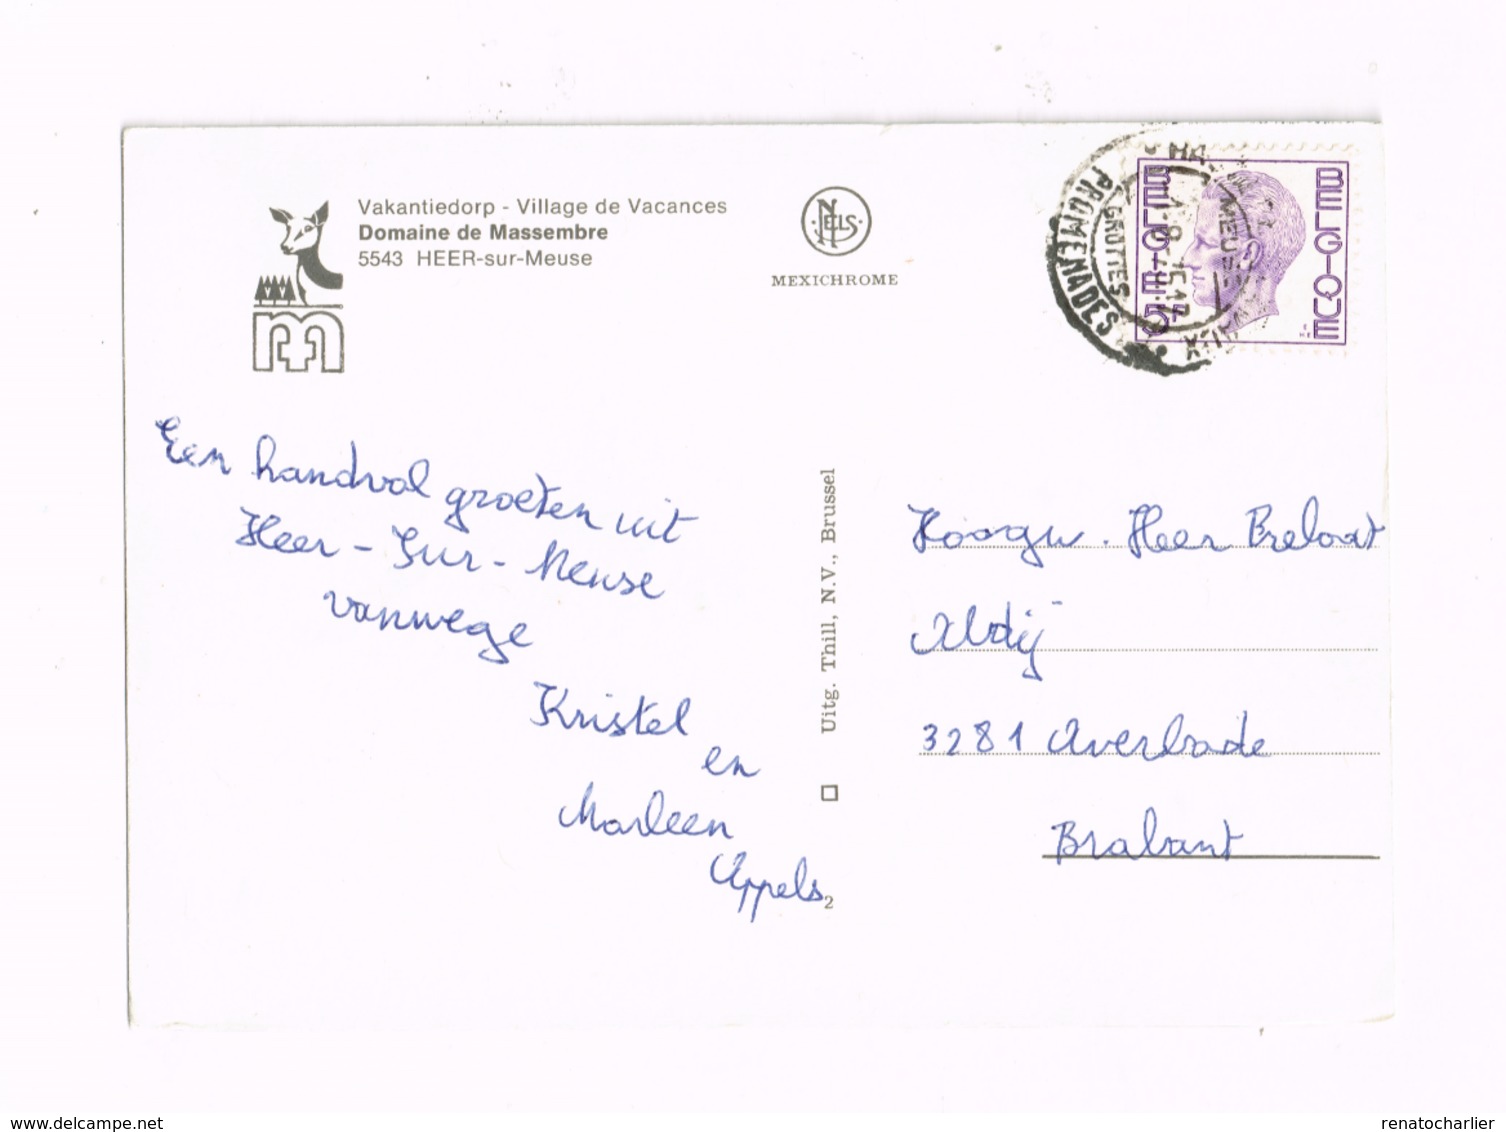 Vakantiedorp - Village de Vacances
Domaine de Massembre
5543 HEER-sur-Meuse
NELS
MEXICHROME
BELGIË 5F
BELGIQUE
PROMENADES
GROTTES
Een handvol groeten uit
Heer - Sur - Meuse
vanwege
Kristel
en
Marleen
Appels
2
Uitg. Thill, N.V., Brussel
Hoogw. Heer Prelaat
Abdij
3281 Averbode
Brabant
www.delcampe.net
renatocharlier